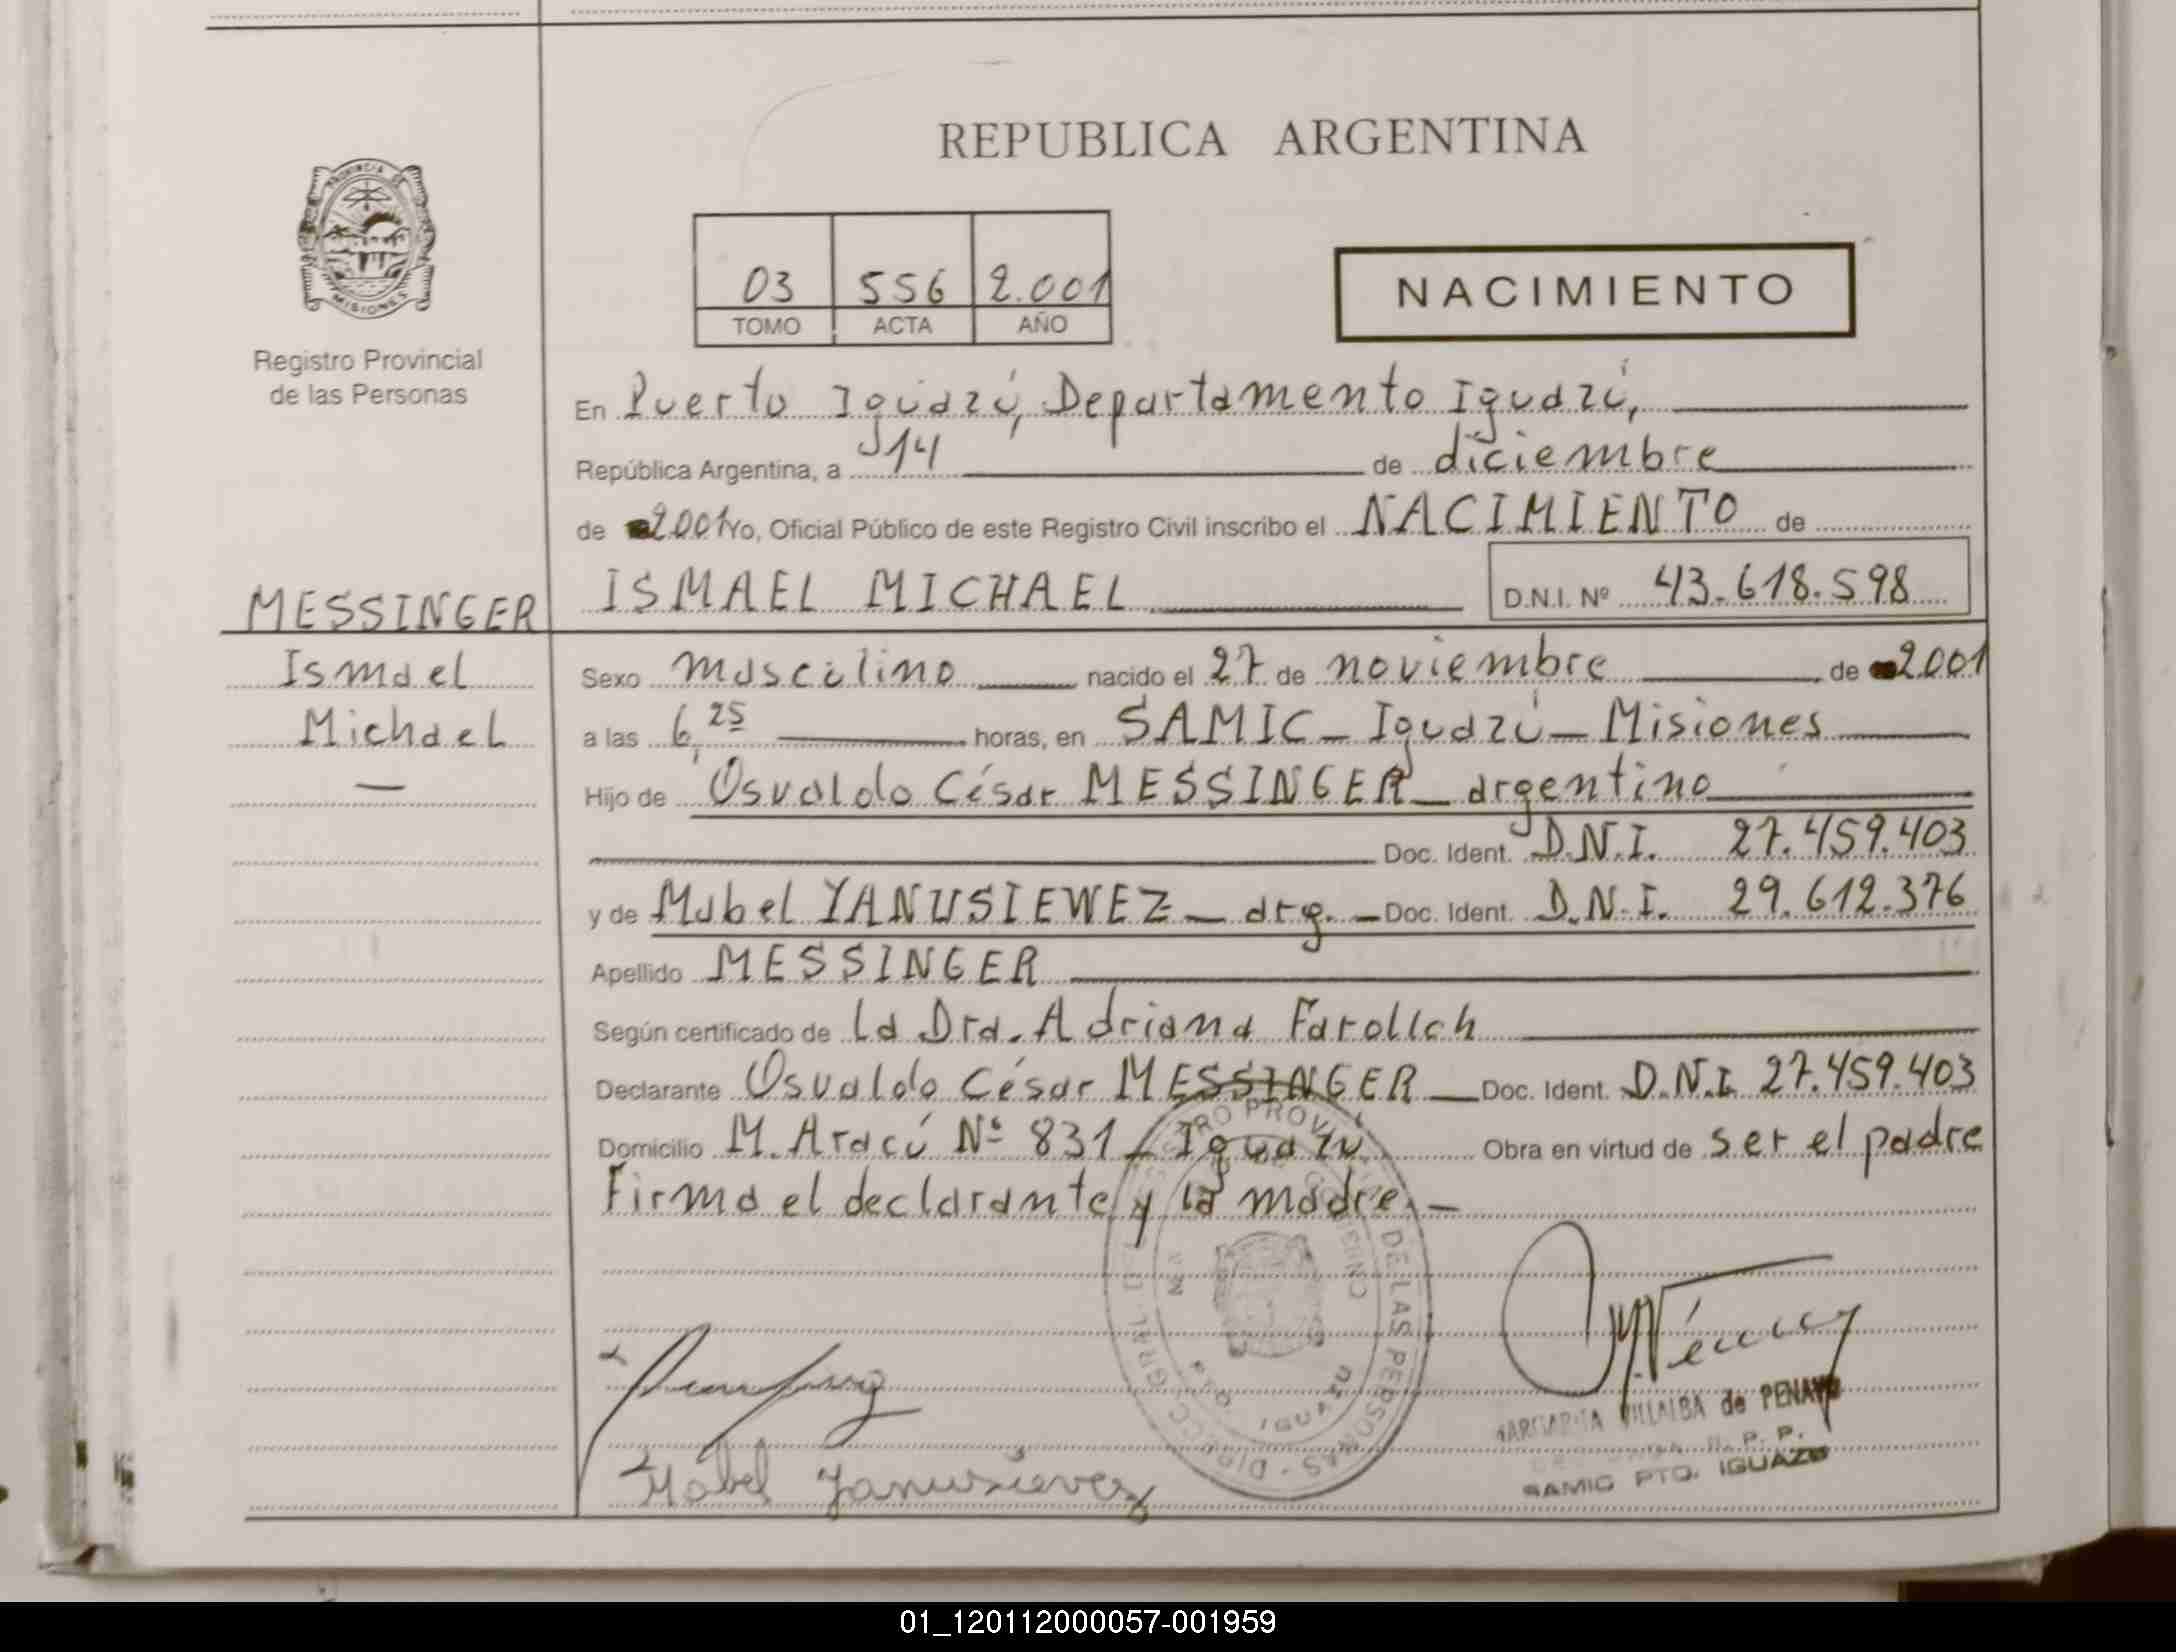 REPUBLICA ARGENTINA
PROVINCIA DE
MISIONES
Registro Provincial
de las Personas
03 556 2.001
TOMO ACTA AÑO
NACIMIENTO
En Puerto Iguazú, Departamento Iguazú,
República Argentina, a 14 de diciembre
de 2001 Yo, Oficial Público de este Registro Civil inscribo el NACIMIENTO de
ISMAEL MICHAEL D.N.I. Nº 43.618.598
MESSINGER
Ismael
Michael
Sexo masculino nacido el 27 de noviembre de 2001
a las 6,25 horas, en SAMIC - Iguazú - Misiones
Hijo de Osvaldo César MESSINGER - argentino
Doc. Ident. D.N.I. 27.459.403
y de Mabel YANUSIEWEZ - arg. - Doc. Ident. D.N.I. 29.612.376
Apellido MESSINGER
Según certificado de la Dra. Adriana Farollch
Declarante Osvaldo César MESSINGER - Doc. Ident. D.N.I. 27.459.403
Domicilio M. Aracú Nº 831 - Iguazu Obra en virtud de ser el padre
Firma el declarante y la madre. -
REGISTRO PROVINCIAL DE LAS PERSONAS - DIRECC. GRAL.
IGUAZU
Mabel Yanusievez
MARGARITA VILLALBA de PENAYO
R. P. P.
SAMIC PTO. IGUAZU
01_120112000057-001959